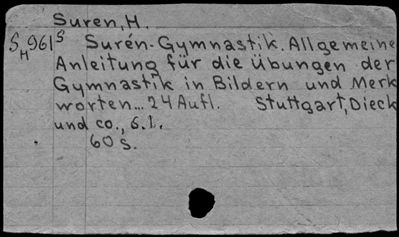 Suren, H.
S H 961 S
Surén-Gymnastik. Allgemeine
Anleitung für die Übungen der
Gymnastik in Bildern und Merk
worten... 24 Aufl. Stuttgart, Dieck
und co., s.l.
60 s.